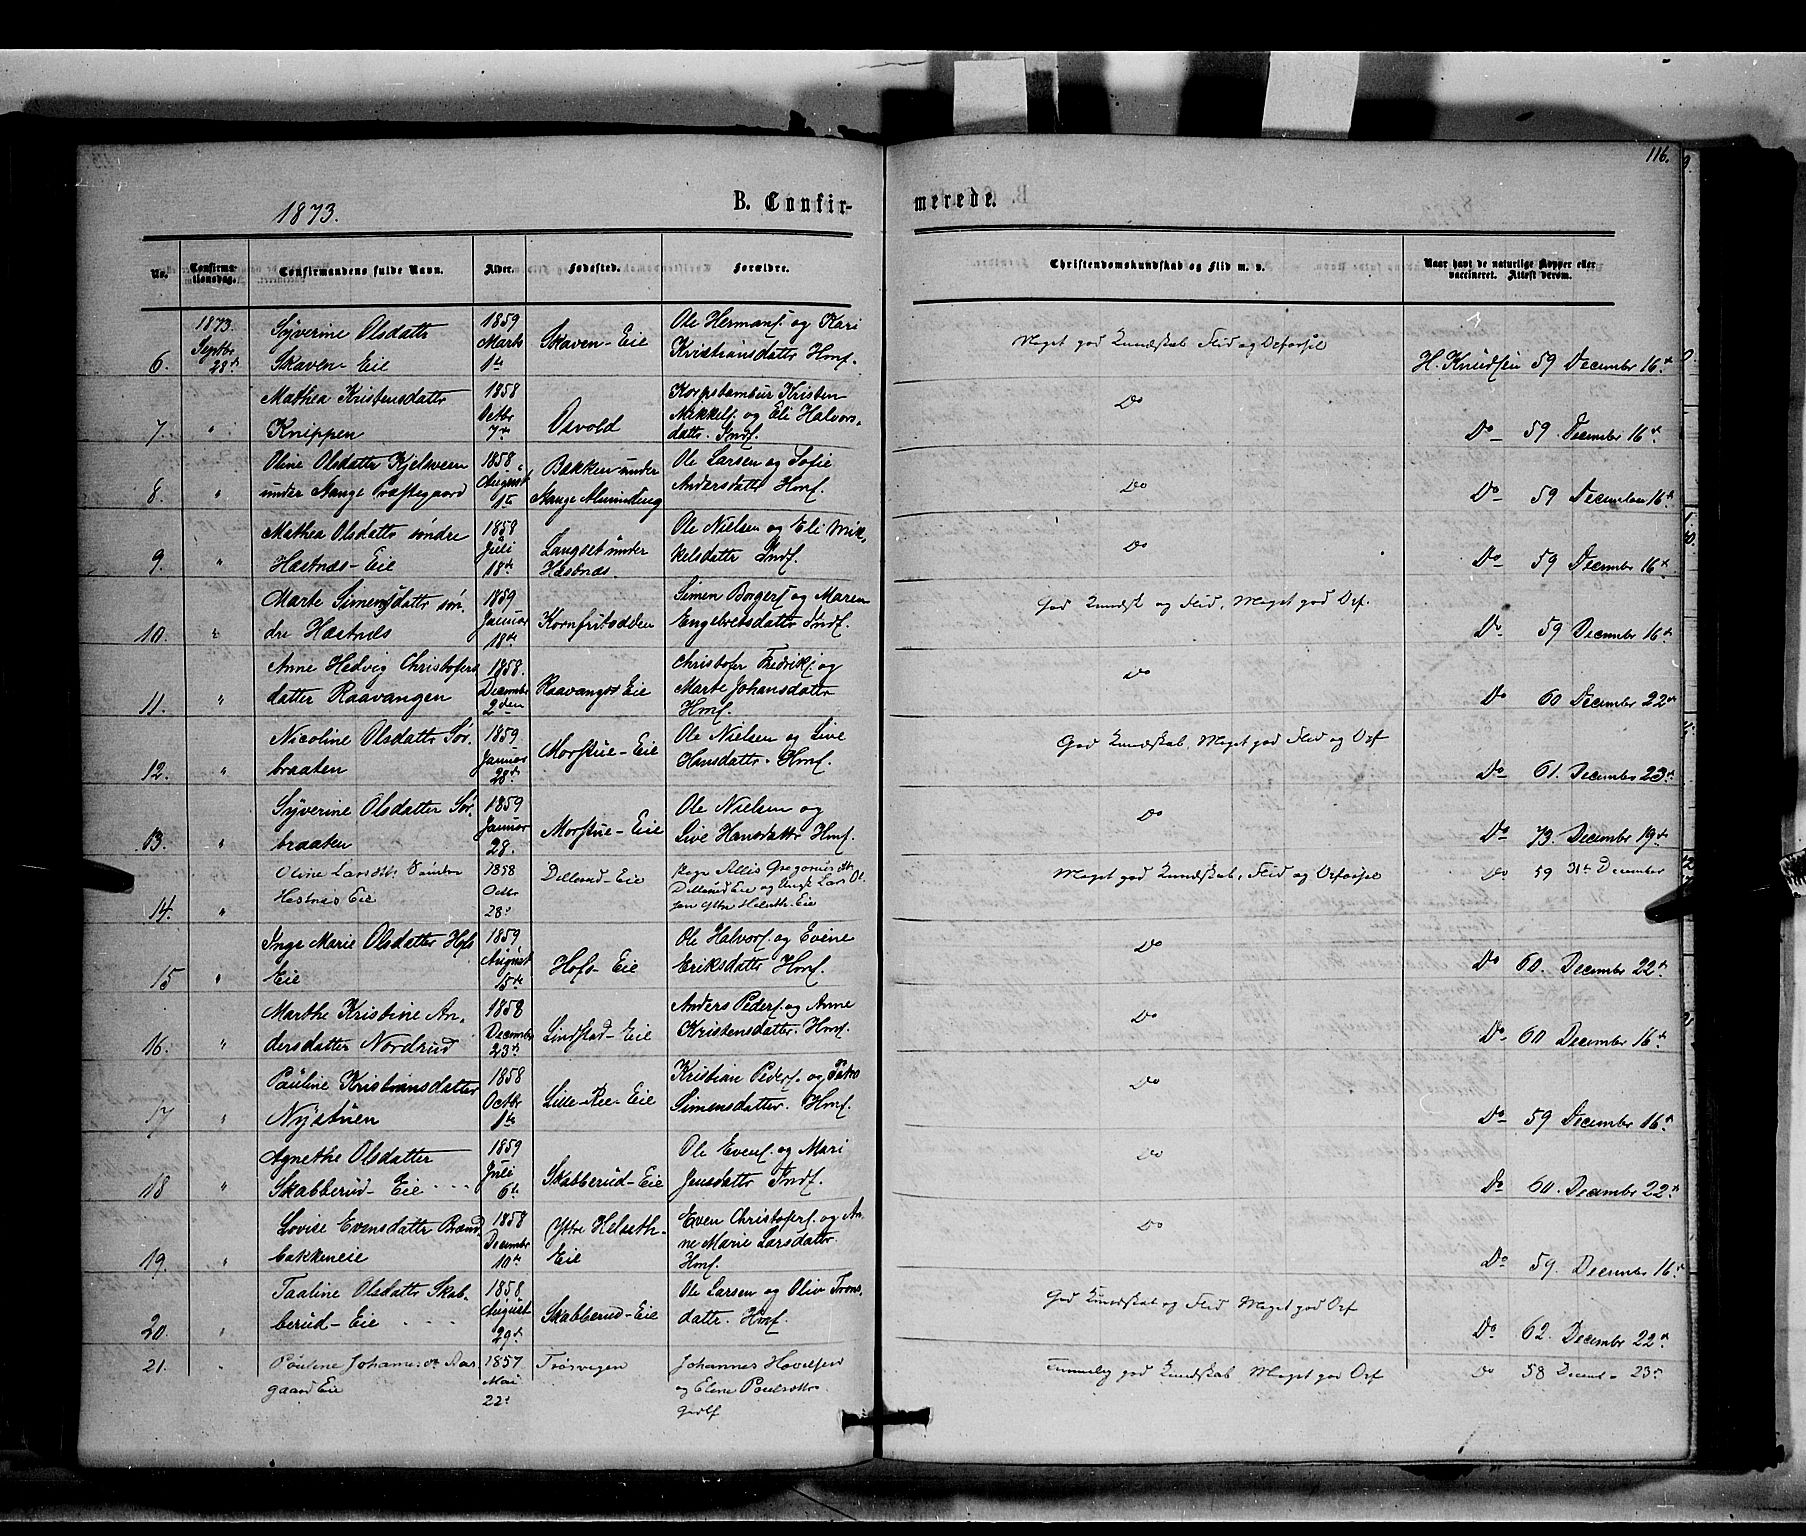 116.
1873.
B. Confir-
merede.
Nr.
Confirma-
tionsdag.
Confirmandens fulde Navn.
Alder.
Fødested.
Forældre.
Christendomskundskab og Flid m. v.
Naar havt de naturlige Kopper eller
vaccineret. Attest derom.
1873.
Septbr
28de
6.
Syverine Olsdatter
Skaven Eie
1859
Marts
1te
Skaven-Eie
Ole Hermans. og Kari
Kristiansdatter Hmf.
Meget god Kundskab Flid og Opførsel
H. Knudsen 59 December 16de
7. "
Mathea Kristensdatter
Knippen
1858
Octbr
7de
Osvold
Korpstambur Kristen
Mikkels. og Eli Halvors-
datter. Indf.
Do
Do 59 December 16de
8. "
Oline Olsdatter Kjelsveen
under Stange Præstegaard
1858
August
1te
Bakken under
Stange Alminding
Ole Larsen og Sofie
Andersdatter Hmf.
Do
Do 59 December 16de
9. "
Mathea Olsdatter søndre
Hæstnæs-Eie
1858
Juli
18de
Langset under
Hæstnæs.
Ole Nielsen og Eli Mik-
kelsdatter Indf.
Do
Do 59 December 16de
10. "
Marte Simensdatter søn-
dre Hæstnæs
1859
Januar
18de
Kornfritodden
Simen Borgers. og Maren
Engebretsdatter Indf.
God Kundsk og Flid, Meget god Opf.
Do 59 December 16de
11. "
Anne Hedvig Christofers
datter Raavangen
1858.
Decembr
2den
Raavangs Eie
Christofer Fredriks. og
Marte Johansdatter
Hmf.
Do
Do 60 December 22de
12. "
Nicoline Olsdatter Sør-
braaten
1859
Januar
28de
Morstue-Eie
Ole Nielsen og Live
Hansdatter. Hmf.
God Kundskab, Meget god Flid og Opf
Do 61. December 23de
13. "
Syverine Olsdatter Sør-
braaten
1859
Januar
28.
Morstue-Eie
Ole Nielsen og
Live Hansdatter Hmf.
Do
Do 73. December 19de
14. "
Oline Larsdtr Søndre
Hestnes Eie
1858
Octbr
28d
Dillerud-Eie
Pige Allis Gregoriusdtr
Dillerud Eie og Ungk Lars Ol
sen Ytre Helseth-Eie
Meget god Kundskab, Flid og Opførsel
Do 59 31te December
15 "
Inge Marie Olsdatter Hofs
Eie
1859
August
15de
Hofs-Eie
Ole Halvors. og Evine
Eriksdatter Hmf.
Do
Do 60. December 22de
16. "
Marthe Kristine An-
dersdatter Nordrud
1858
December
23de
Lindstad-Eie
Anders Peders. og Anne
Kristensdatter. Hmf.
Do
Do 60 December 16de
17 "
Pauline Kristiansdatter
Nystuen
1858
Octbr
1te
Lille-Ree-Eie
Kristian Peders. og
Simensdatter. Hmf.
Do
Do 59 December 16de
18 "
Agnethe Olsdatter
Skabberud-Eie
1859
Juli
6te
Skabberud-Eie
Ole Evens. og Mari
Jensdatter Indf.
Do
Do 60. December 22de
19. "
Lovise Evensdatter Brænd
bakkeneie
1858
Decembr
10de
Ytre Helseth-
Eie
Even Christofers. og An-
ne Marie Larsdatter.
Hmf.
Do
Do 59. December 16de
20. "
Taaline Olsdatter Skab-
berud-Eie
1858
August
29de
Skabberud-Eie
Ole Larsen og Oliv Trons-
datter. Hmf.
God Kundskab og Flid Meget god Opf
Do 62. December 22de
21. "
Pauline Johannesdtr Aas-
gaard Eie
1857
Mai
22d
Trosvigen
Johannes Hovelsen
og Eline Paulsdtter
Gaardf
Temmelig god Kundskab Meget god Opf
Do 58 Decembr 23de